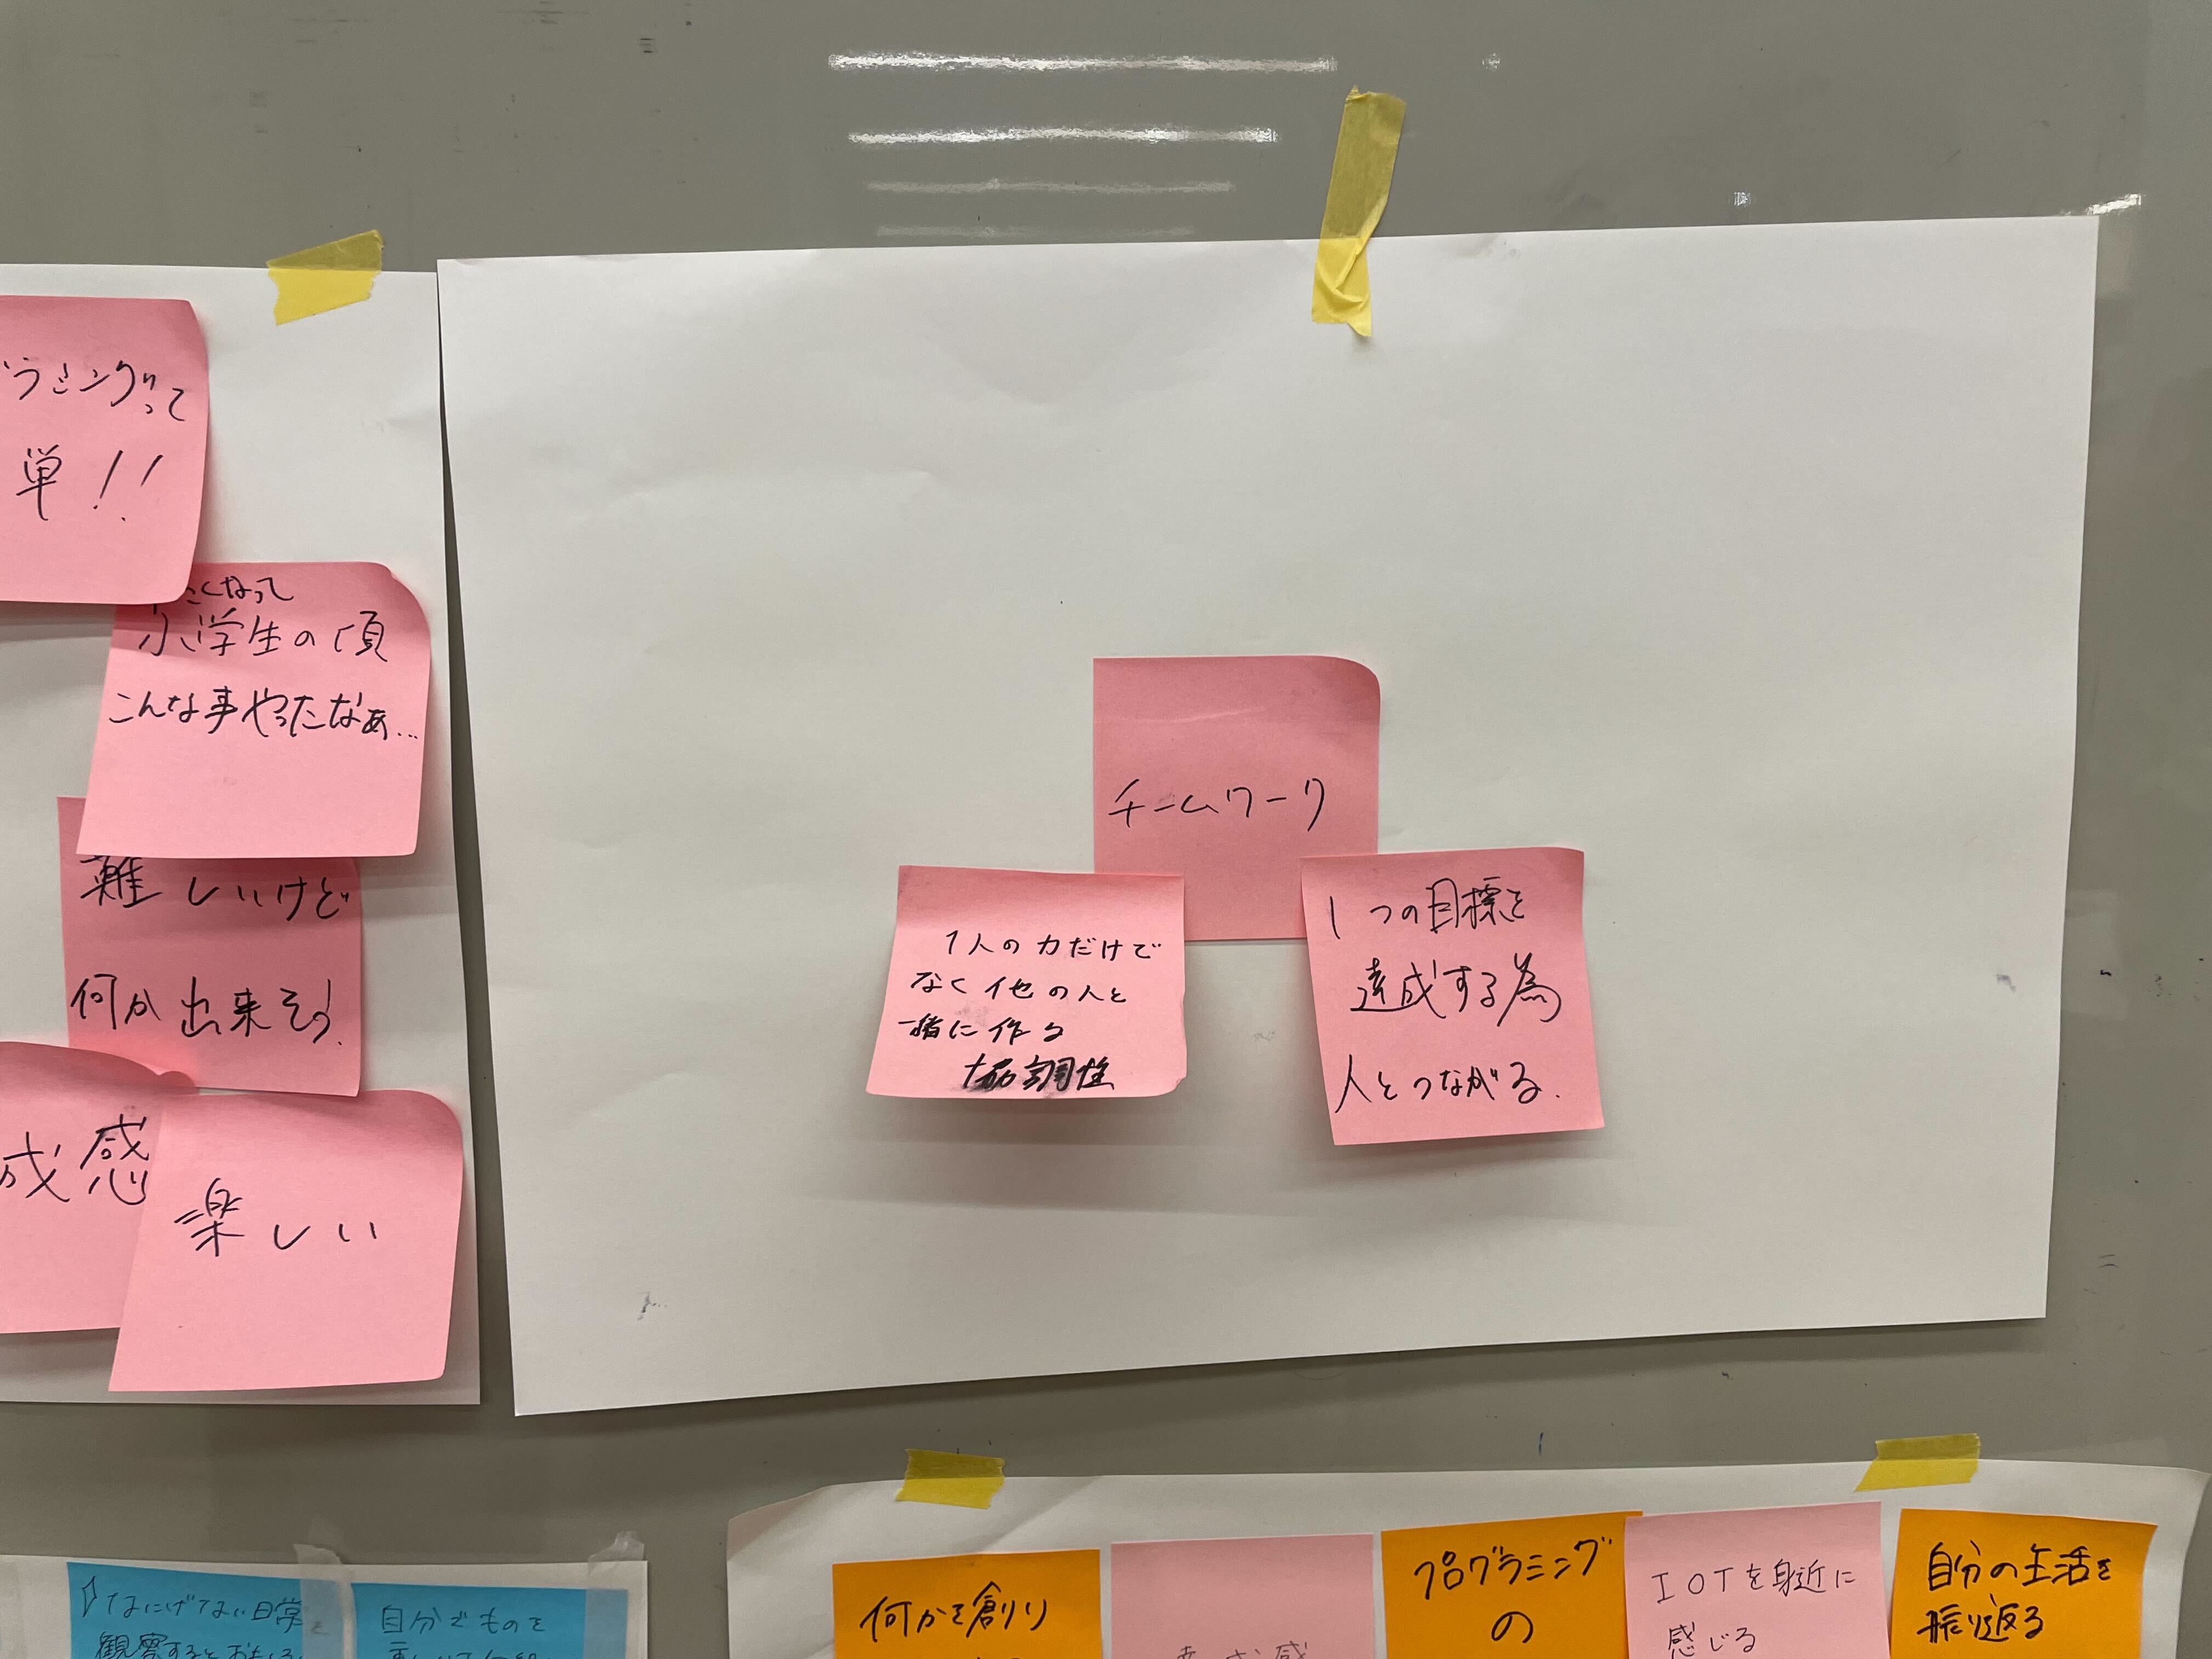 ラミングって
単!!
くなって
小学生の頃
こんな事やったなぁ…
難しいけど
何か出来そう.
成感
楽しい
チームワーク
1人の力だけで
なく他の人と
一緒に作る
協調性
1つの目標を
達成する為
人とつながる.
なにげない日常
観察するとおもしろい
自分でものを
何かを創り
感
プログラミング
の
IOTを身近に
感じる
自分の生活を
振り返る